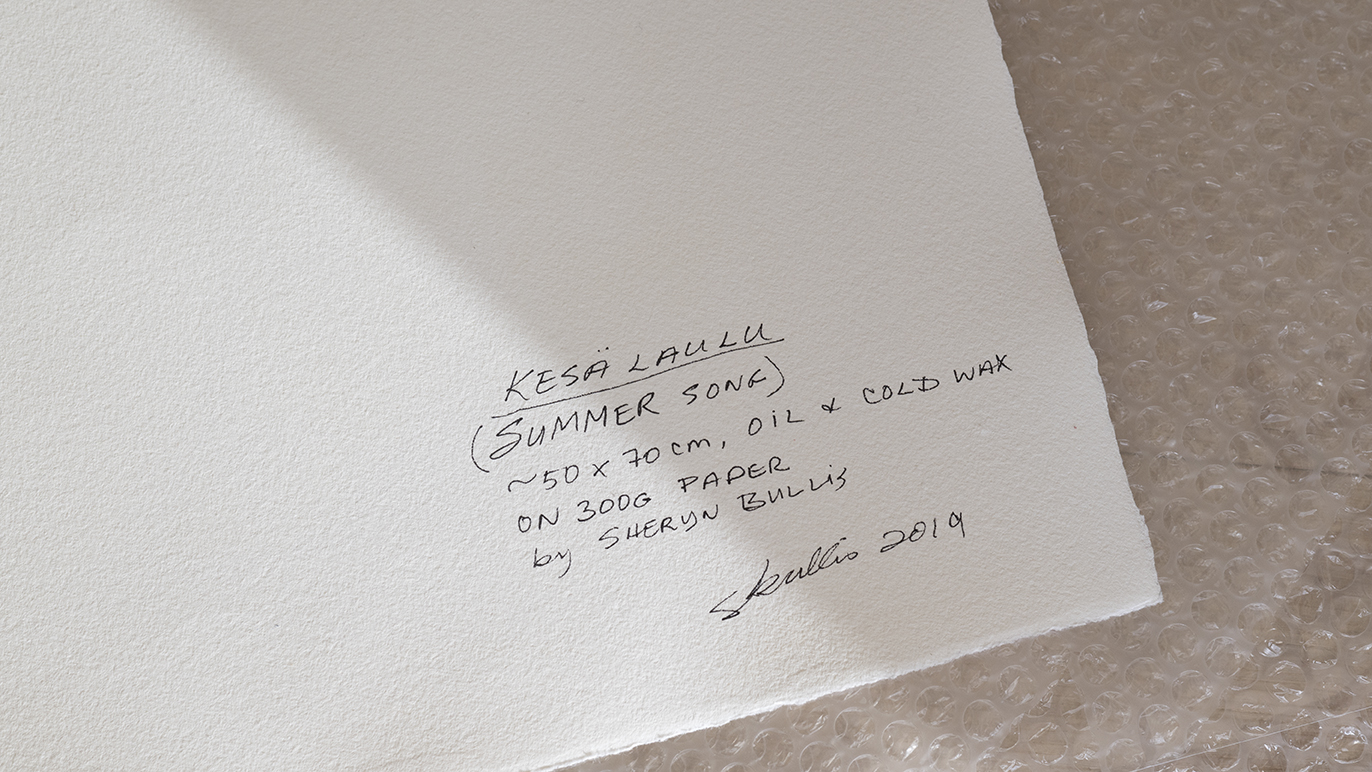 KESÄ LAULU
(SUMMER SONG)
~50 x 70 cm, OIL & COLD WAX
ON 300G PAPER
by SHERYN BULLIS
SBullis 2019